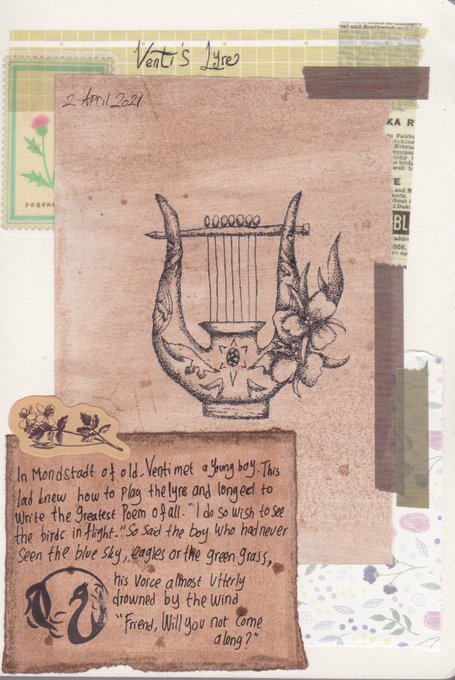 Venti's Lyre
2 April 2021
POSTAG
KA R
BL
OOK.
In Mondstadt of old. Venti met a young boy. This
lad knew how to play the lyre and longed to
Write the Greatest Poem of all. "I do so wish to see
the birds in flight." So said the boy who had never
seen the blue sky, eagles or the green grass,
his voice almost utterly
drowned by the wind
"Friend, Will you not come
along?"